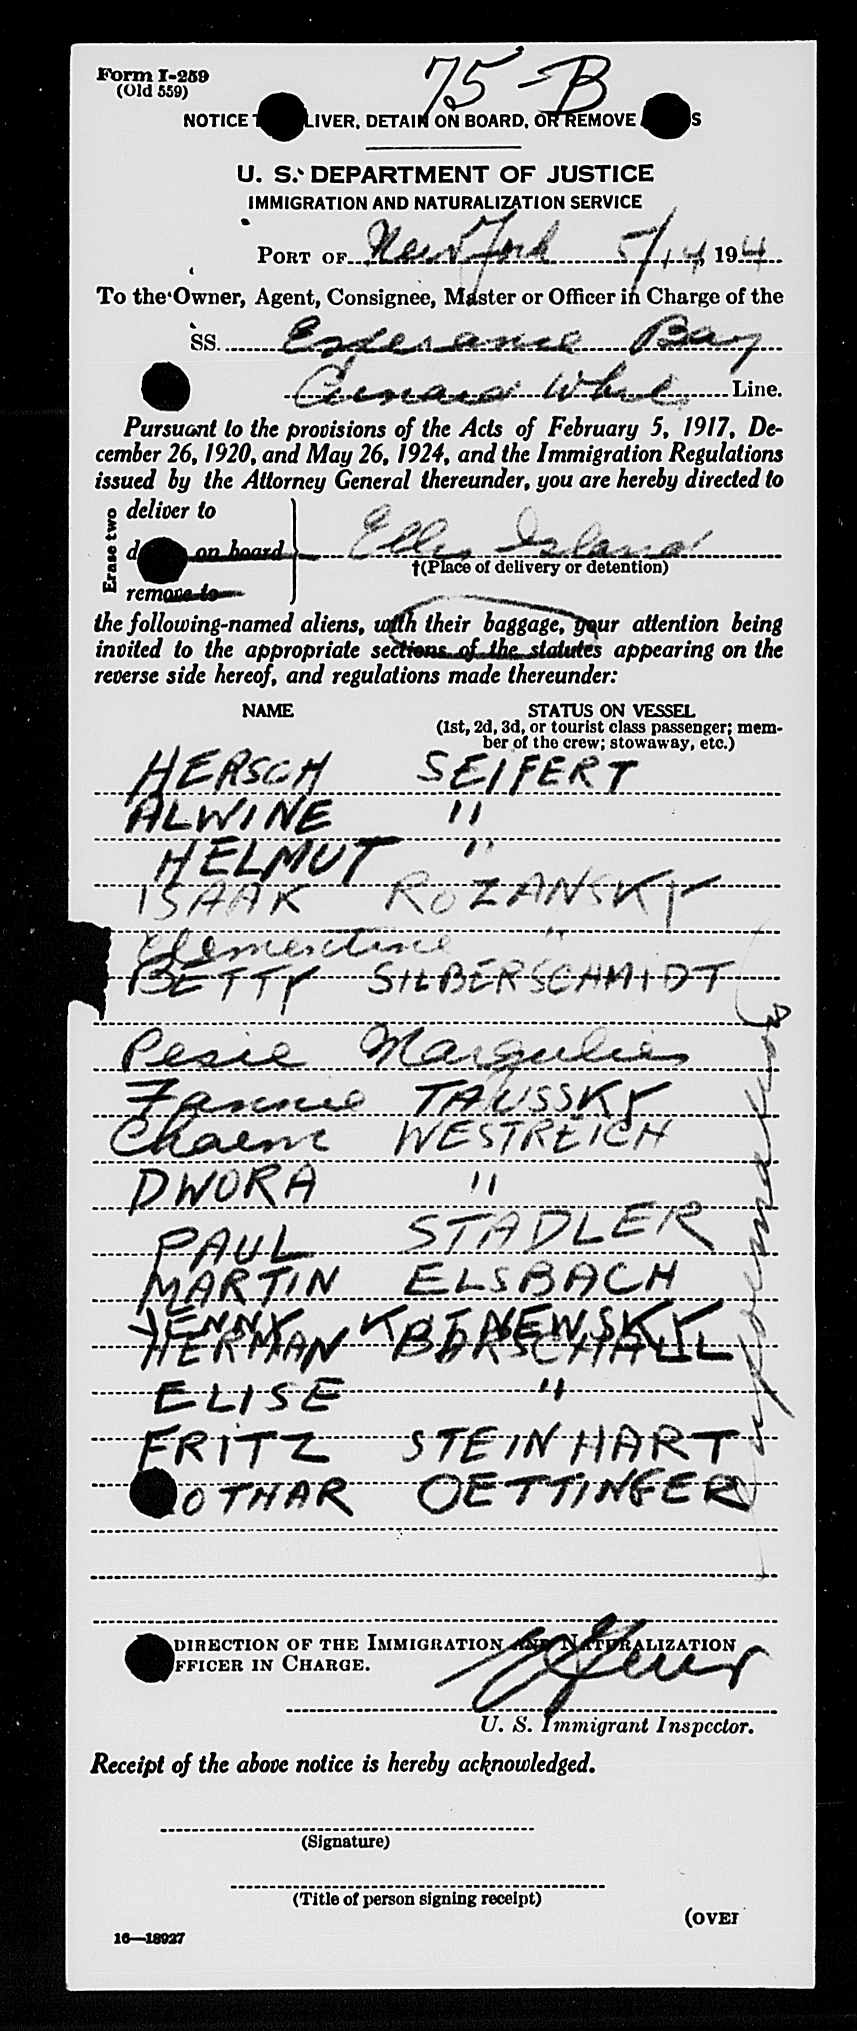 Form I-259
(Old 559)
75-B
NOTICE LIVER, DETAIN ON BOARD, OR REMOVE
U. S. DEPARTMENT OF JUSTICE
IMMIGRATION AND NATURALIZATION SERVICE
PORT OF New York 5/14, 194
To the Owner, Agent, Consignee, Master or Officer in Charge of the
SS. Esperance Bay
Cunard White Line.
Pursuant to the provisions of the Acts of February 5, 1917, De-
cember 26, 1920, and May 26, 1924, and the Immigration Regulations
issued by the Attorney General thereunder, you are hereby directed to
Erase two
deliver to
on board
remove to
Ellis Island
†(Place of delivery or detention)
the following-named aliens, with their baggage, your attention being
invited to the appropriate sections of the statutes appearing on the
reverse side hereof, and regulations made thereunder:
NAME STATUS ON VESSEL
(1st, 2d, 3d, or tourist class passenger; mem-
ber of the crew; stowaway, etc.)
HERSCH SEIFERT
ALWINE "
HELMUT "
ISAAK ROZANSKY
Clementine "
BETTY SILBERSCHMIDT
Pesie Margulies
Fannie TAUSSKY
Chaem WESTREICH
DWORA "
PAUL STADLER
MARTIN ELSBACH
JENNY
HERMAN BARSCHALL
ELISE "
FRITZ STEINHART
OTHAR OETTINGER
DIRECTION OF THE IMMIGRATION AND NATURALIZATION
FFICER IN CHARGE.
U. S. Immigrant Inspector.
Receipt of the above notice is hereby acknowledged.
(Signature)
(Title of person signing receipt)
(OVER
16—18927